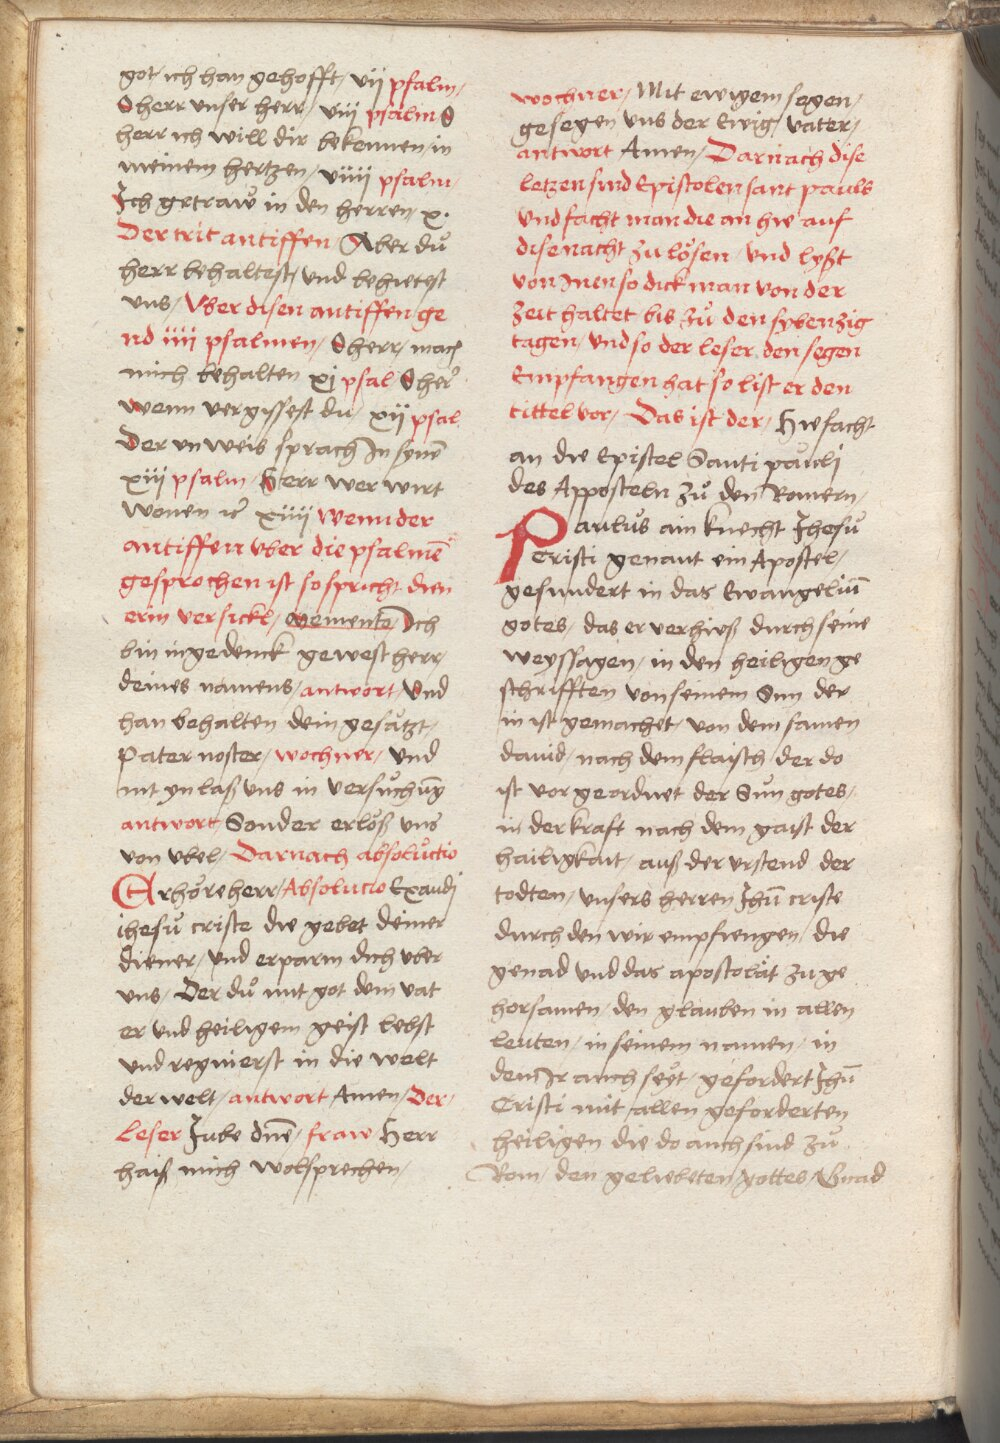 got/ ich han gehofft/ vij psalm/
O herr vnser herr/ viij psalm O
herr ich will dir bekennen/ in
meinem hertzen/ viiij psalm/
Ich getraẘ in den herren/ x.
Der trit antiffen/ Aber dů
herr behaltest/ vnd behietest
vns/ Vber disen antiffen ge
nd iiij psalmen/ O herr/ mach
mich behalten xj psal O her
wenn vergissest du/ xij psal
Der vnweis sprach In synē
xiij psalm/ Herr wer wirt
wonen ꝛc xiiij Wenn der
antiffen vber die psalmē
gesprochen ist so spricht dien
erin versickl/ Memento/ Ich
bin ingedenck gewest herr/
deines namens/ antwort Vnd
han behalten dein gesåtzt/
Pater noster/ wochner/ Vnd
nit yn laß vns in versůchūg
antwort/ Sonder erlöß vns
von vbel/ Darnach absolůctio
Erhöre herr/ Absolucio Exaudj
ihesů criste die gebet deiner
diener/ vnd erparm dich vber
vns/ Der dů mit got dem vat
er vnd heiligem geist lebst
vnd regnierst in die welt
der welt/ antwort Amen/ Der/
leser Jube dnē/ fraw Herr
haiß mich wolsprechen/
wochner/ Mit ewigem segen/
gesegen vns der Ewig/ vater/
antwort Amen/ Darnach dise
letzen sind Epistolen sant pauls
vnd facht man die an hie auf
dise nacht zu lösen/ vnd lyßt
von Inen so dick man von der
zeit haltet bis zů den sybenzig
tagen/ vnd so der leser den segen
Empfangen hat so list er den
tittel vor/ Das ist der/ Hie facht
an die Epistel Santi paulj
des Apposteln zů den Romern/
Paulůs ain knecht Jhesů
Cristi genant ein Apostel/
gesundert in das Ewangeliū
gotes/ das er verhieß durch seine
weyssagen/ in den heiligen ge
schrifften von seinem Sun der
in ist gemachet/ von dem samen
dauid/ nach dem flaisch/ der do
ist vor geordnet der Sůn gotes/
in der kraft nach dem gaist der
hailigkait/ auß der vrstend der
todten/ vnsers herren Jhū criste
durch den wir empfiengen/ die
genad vnd das apostolåt zu ge
horsamen/ den glauben in allen
leuten/ in seinem namen/ in
dem Ir auch seyt/ gefordert Jhū
Cristi mit allen geforderten
heiligen die do auch sind zů
Rom/ den geliebten gottes/ Gnad